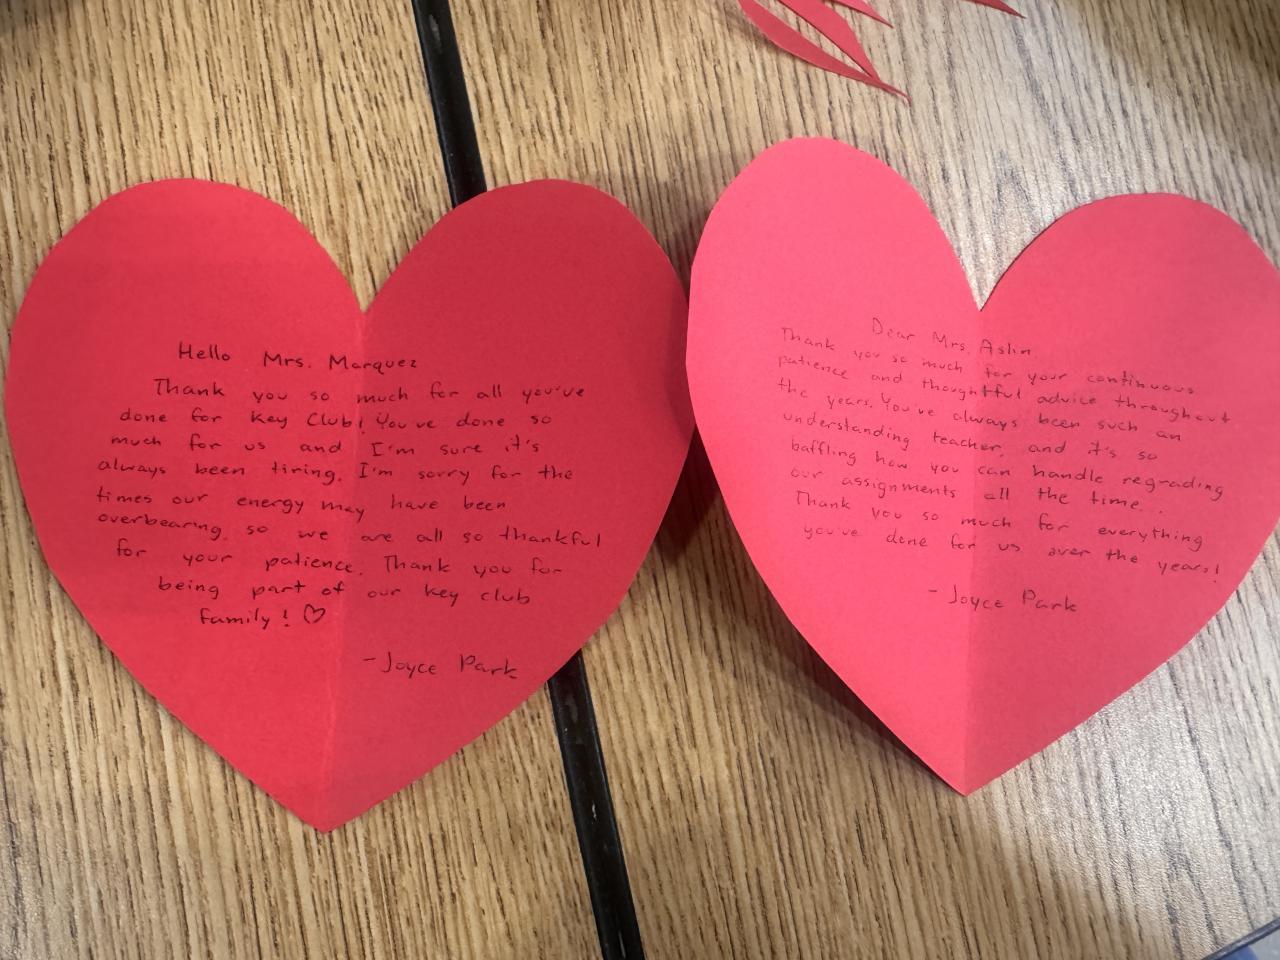 Hello Mrs. Marquez
Thank you so much for all you've
done for Key Club! You've done so
much for us and I'm sure it's
always been tiring. I'm sorry for the
times our energy may have been
overbearing so we are all so thankful
for your patience. Thank you for
being part of our key club
family! ♡
-Joyce Park
Dear Mrs. Aslin
Thank you so much for your continuous
patience and thoughtful advice throughout
the years. You've always been such an
understanding teacher, and it's so
baffling how you can handle regrading
our assignments all the time..
Thank you so much for everything
you've done for us over the years!
- Joyce Park